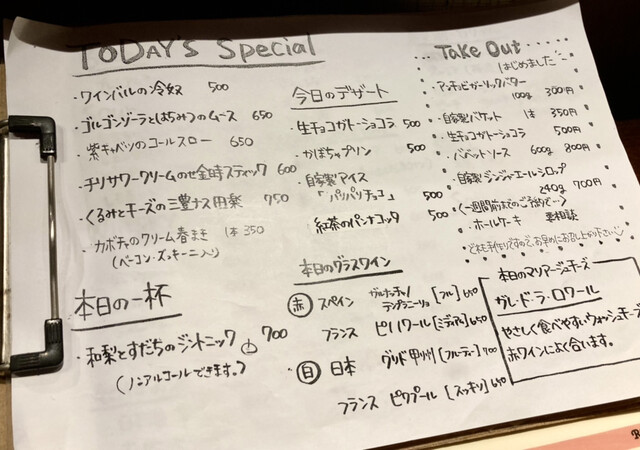 TODAY'S Special
・ワインバルの冷奴 500
・ゴルゴンゾーラとはちみつのムース 650
・紫キャベツのコールスロー 650
・チリサワークリームのせ金時スティック 600
・くるみとチーズの三豊ナス田楽 750
・カボチャのクリーム春まき 1本 350
(ベーコン・ズッキーニ入り)
本日の一杯
・和梨とすだちのジントニック 700
(ノンアルコールできます。)
今日のデザート
・生チョコガトーショコラ 500
・かぼちゃプリン 500
・自家製アイス
「パリパリチョコ」 500
紅茶のパンナコッタ 500
本日のグラスワイン
赤 スペイン ガルナッチャ/テンプラニーリョ [フル] 650
フランス ピノノワール [ミディアム] 650
白 日本 グリド甲州 [フルーティー] 700
フランス ピクプール [スッキリ] 650
Take Out
はじめました
・アンチョビガーリックバター
100g 300円
・自家製バゲット 1本 350円
・生チョコガトーショコラ 500円
・バベットソース 600g 800円
・自家製ジンジャーエールシロップ
240g 700円
<一週間前までのご予約で…>
・ホールケーキ 要相談
どれも手作りですので、お早めにお召し上がり下さい
本日のマリアージュチーズ
ガレ・ド・ラ・ロワール
やさしく食べやすいウォッシュチーズ
赤ワインによく合います。